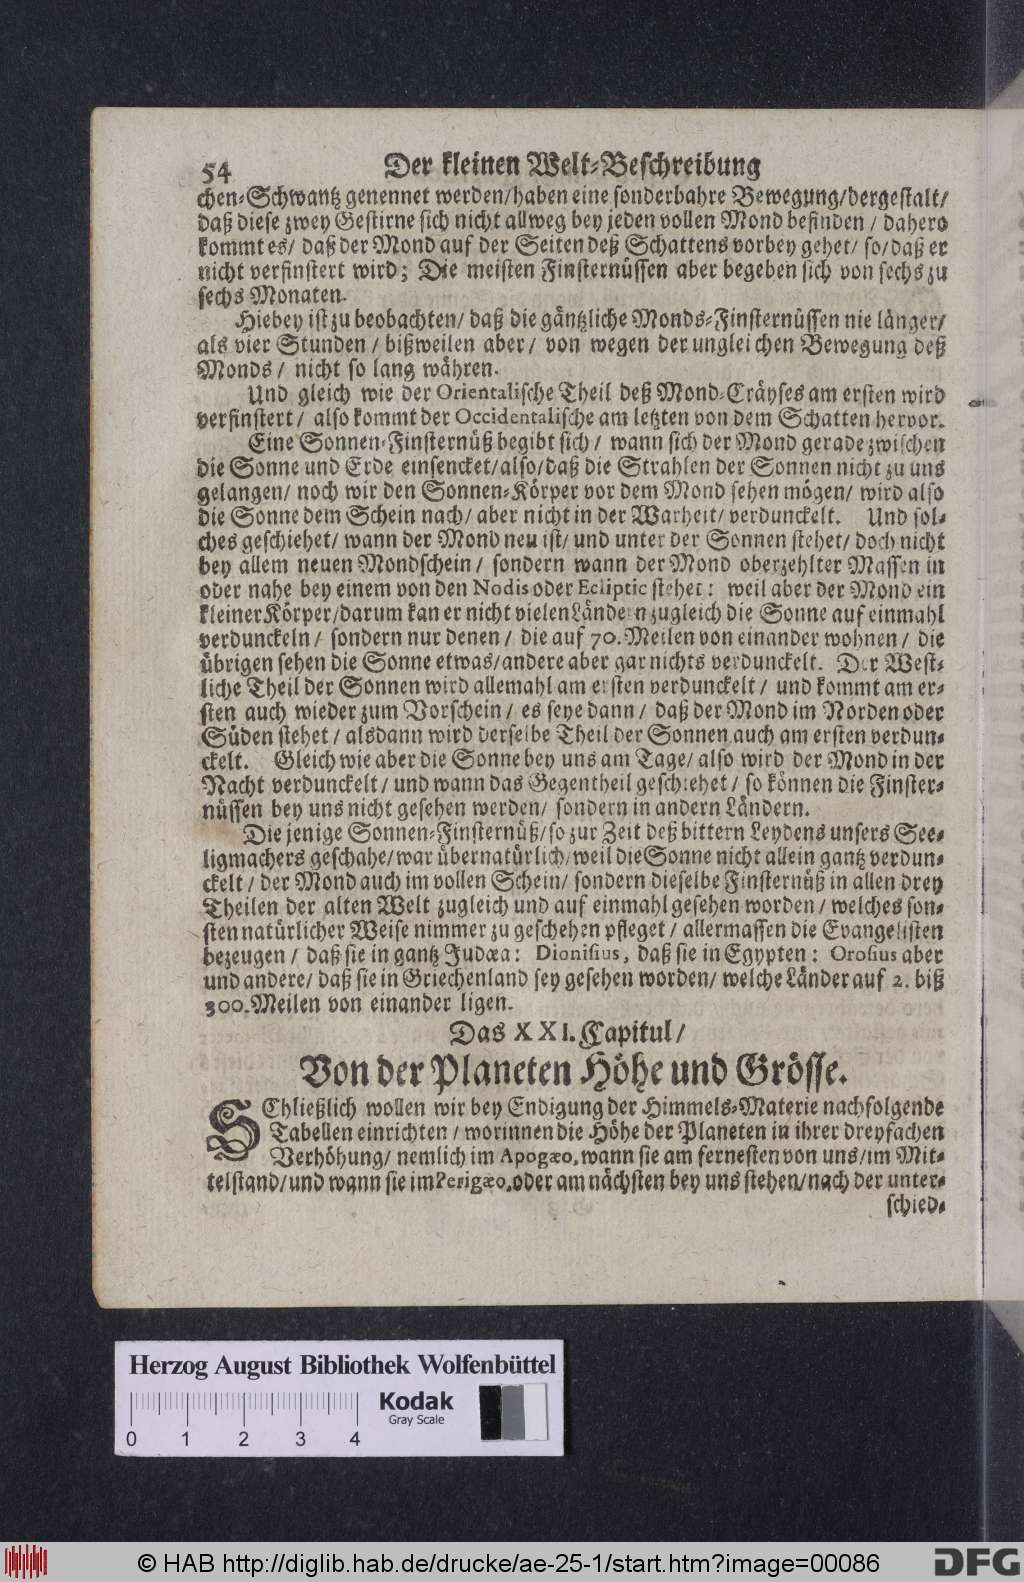 54 Der kleinen Welt-Beschreibung
chen-Schwantz genennet werden/ haben eine sonderbahre Bewegung/ dergestalt/
daß diese zwey Gestirne sich nicht allweg bey jeden vollen Mond befinden / dahero
kommt es/ daß der Mond auf der Seiten deß Schattens vorbey gehet/ so/ daß er
nicht verfinstert wird; Die meisten Finsternüssen aber begeben sich von sechs zu
sechs Monaten.
Hiebey ist zu beobachten/ daß die gäntzliche Monds-Finsternüssen nie länger/
als vier Stunden / bißweilen aber / von wegen der ungleichen Bewegung deß
Monds / nicht so lang währen.
Und gleich wie der Orientalische Theil deß Mond-Cräyses am ersten wird
verfinstert / also kommt der Occidentalische am letzten von dem Schatten hervor.
Eine Sonnen-Finsternüß begibt sich / wann sich der Mond gerade zwischen
die Sonne und Erde einsencket/ also/ daß die Strahlen der Sonnen nicht zu uns
gelangen/ noch wir den Sonnen-Körper vor dem Mond sehen mögen/ wird also
die Sonne dem Schein nach/ aber nicht in der Warheit/ verdunckelt. Und sol-
ches geschiehet/ wann der Mond neu ist/ und unter der Sonnen stehet/ doch nicht
bey allem neuen Mondschein / sondern wann der Mond oberzehlter Massen in
oder nahe bey einem von den Nodis oder Ecliptic stehet: weil aber der Mond ein
kleiner Körper/ darum kan er nicht vielen Ländern zugleich die Sonne auf einmahl
verdunckeln / sondern nur denen / die auf 70. Meilen von einander wohnen / die
übrigen sehen die Sonne etwas/ andere aber gar nichts verdunckelt. Der West-
liche Theil der Sonnen wird allemahl am ersten verdunckelt / und kommt am er-
sten auch wieder zum Vorschein / es seye dann / daß der Mond im Norden oder
Süden stehet / alsdann wird derselbe Theil der Sonnen auch am ersten verdun-
ckelt. Gleich wie aber die Sonne bey uns am Tage/ also wird der Mond in der
Nacht verdunckelt / und wann das Gegentheil geschiehet / so können die Finster-
nüssen bey uns nicht gesehen werden/ sondern in andern Ländern.
Die jenige Sonnen-Finsternüß/ so zur Zeit deß bittern Leydens unsers See-
ligmachers geschahe/ war übernatürlich/ weil die Sonne nicht allein gantz verdun-
ckelt / der Mond auch im vollen Schein/ sondern dieselbe Finsternüß in allen drey
Theilen der alten Welt zugleich und auf einmahl gesehen worden / welches son-
sten natürlicher Weise nimmer zu geschehen pfleget / allermassen die Evangelisten
bezeugen / daß sie in gantz Judæa: Dionisius, daß sie in Egypten: Orosius aber
und andere/ daß sie in Griechenland sey gesehen worden/ welche Länder auf 2. biß
300. Meilen von einander ligen.
Das XXI. Capitul/
Von der Planeten Höhe und Grösse.
SChließlich wollen wir bey Endigung der Himmels-Materie nachfolgende
Tabellen einrichten / worinnen die Höhe der Planeten in ihrer dreyfachen
Verhöhung/ nemlich im Apogæo, wann sie am fernesten von uns/ im Mit-
telstand/ und wann sie im Perigæo, oder am nächsten bey uns stehen/ nach der unter-
schied-
Herzog August Bibliothek Wolfenbüttel
Kodak
Gray Scale
0 1 2 3 4
© HAB http://diglib.hab.de/drucke/ae-25-1/start.htm?image=00086
DFG